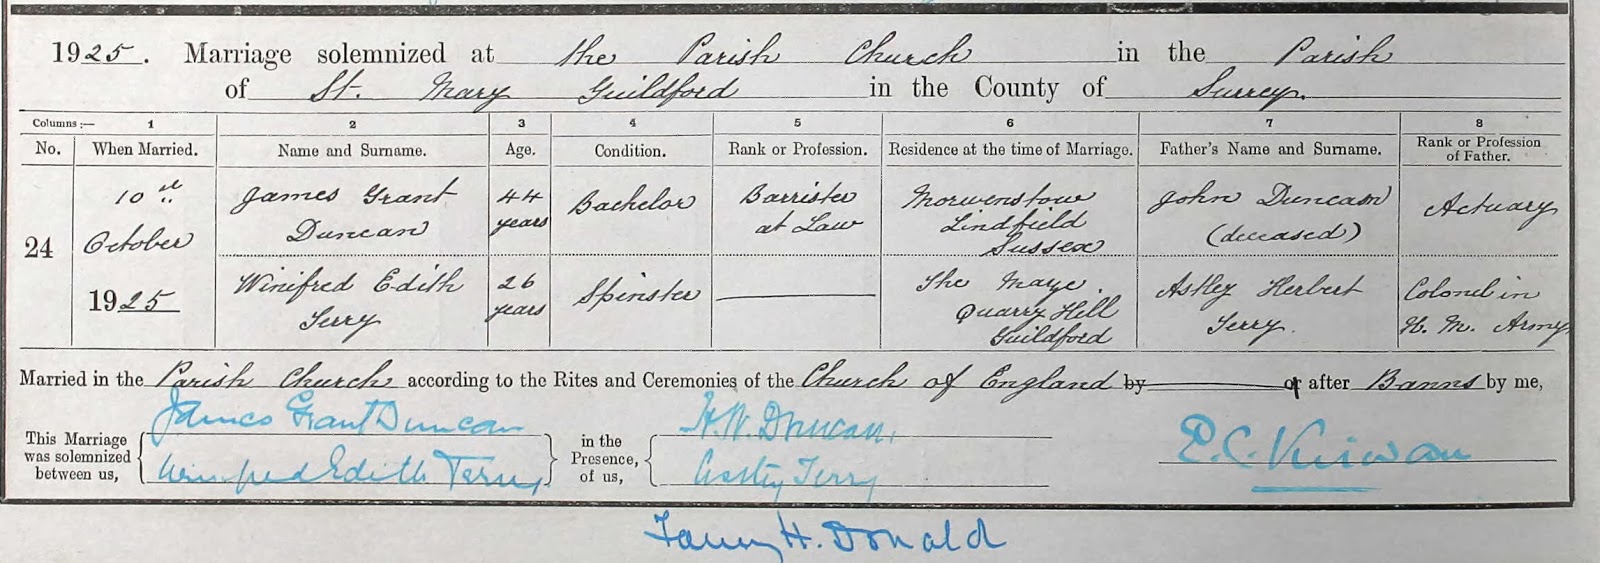 1925. Marriage solemnized at the Parish Church in the Parish
of St. Mary Guildford in the County of Surrey.
Columns :— 1 2 3 4 5 6 7 8
No. When Married. Name and Surname. Age. Condition. Rank or Profession. Residence at the time of Marriage. Father's Name and Surname. Rank or Profession of Father.
24
10th
October
1925
James Grant
Duncan
44
years
Bachelor
Barrister
at Law
Morwenstow
Lindfield
Sussex
John Duncan
(deceased)
Actuary
Winifred Edith
Terry
26
years
Spinster
The Maye.
Quarry Hill
Guildford
Astley Herbert
Terry.
Colonel in
H. M. Army
Married in the Parish Church according to the Rites and Ceremonies of the Church of England by or after Banns by me,
This Marriage
was solemnized
between us,
James Grant Duncan
Winifred Edith Terry
in the
Presence,
of us,
H. W. Duncan.
Astley Terry
E. C. Kirwan
Fanny H. Donald